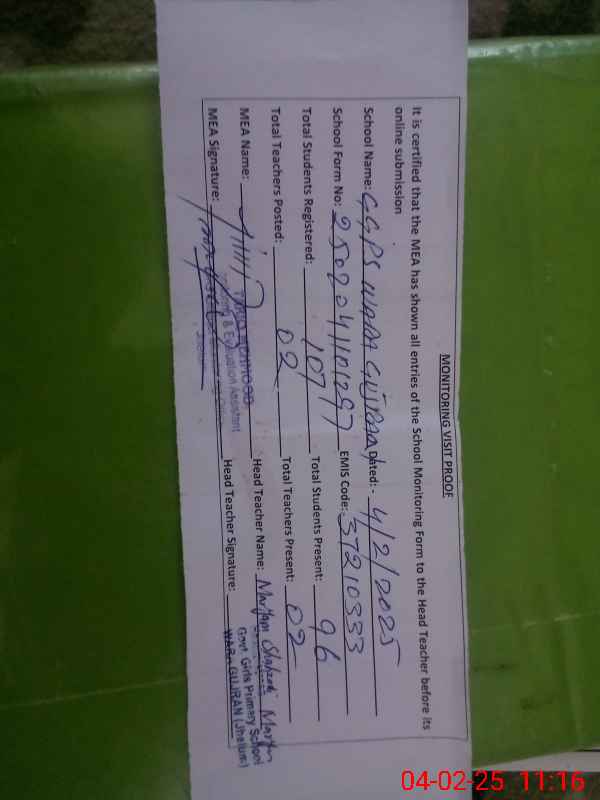 MONITORING VISIT PROOF
It is certified that the MEA has shown all entries of the School Monitoring Form to the Head Teacher before its
online submission
School Name: GGPS WARA GUJRAN Dated:- 4/2/2025
School Form No: 2502041101297 EMIS Code:- 37210333
Total Students Registered: 107 Total Students Present: 96
Total Teachers Posted: 02 Total Teachers Present: 02
MEA Name: Head Teacher Name: Maryam Shahzadi
MEHMOOD
& Evaluation Assistant
MEA Signature: Head Teacher Signature: Maryam
Govt. Girls Primary School
WARA GUJRAN (Jhelum)
04-02-25 11:16